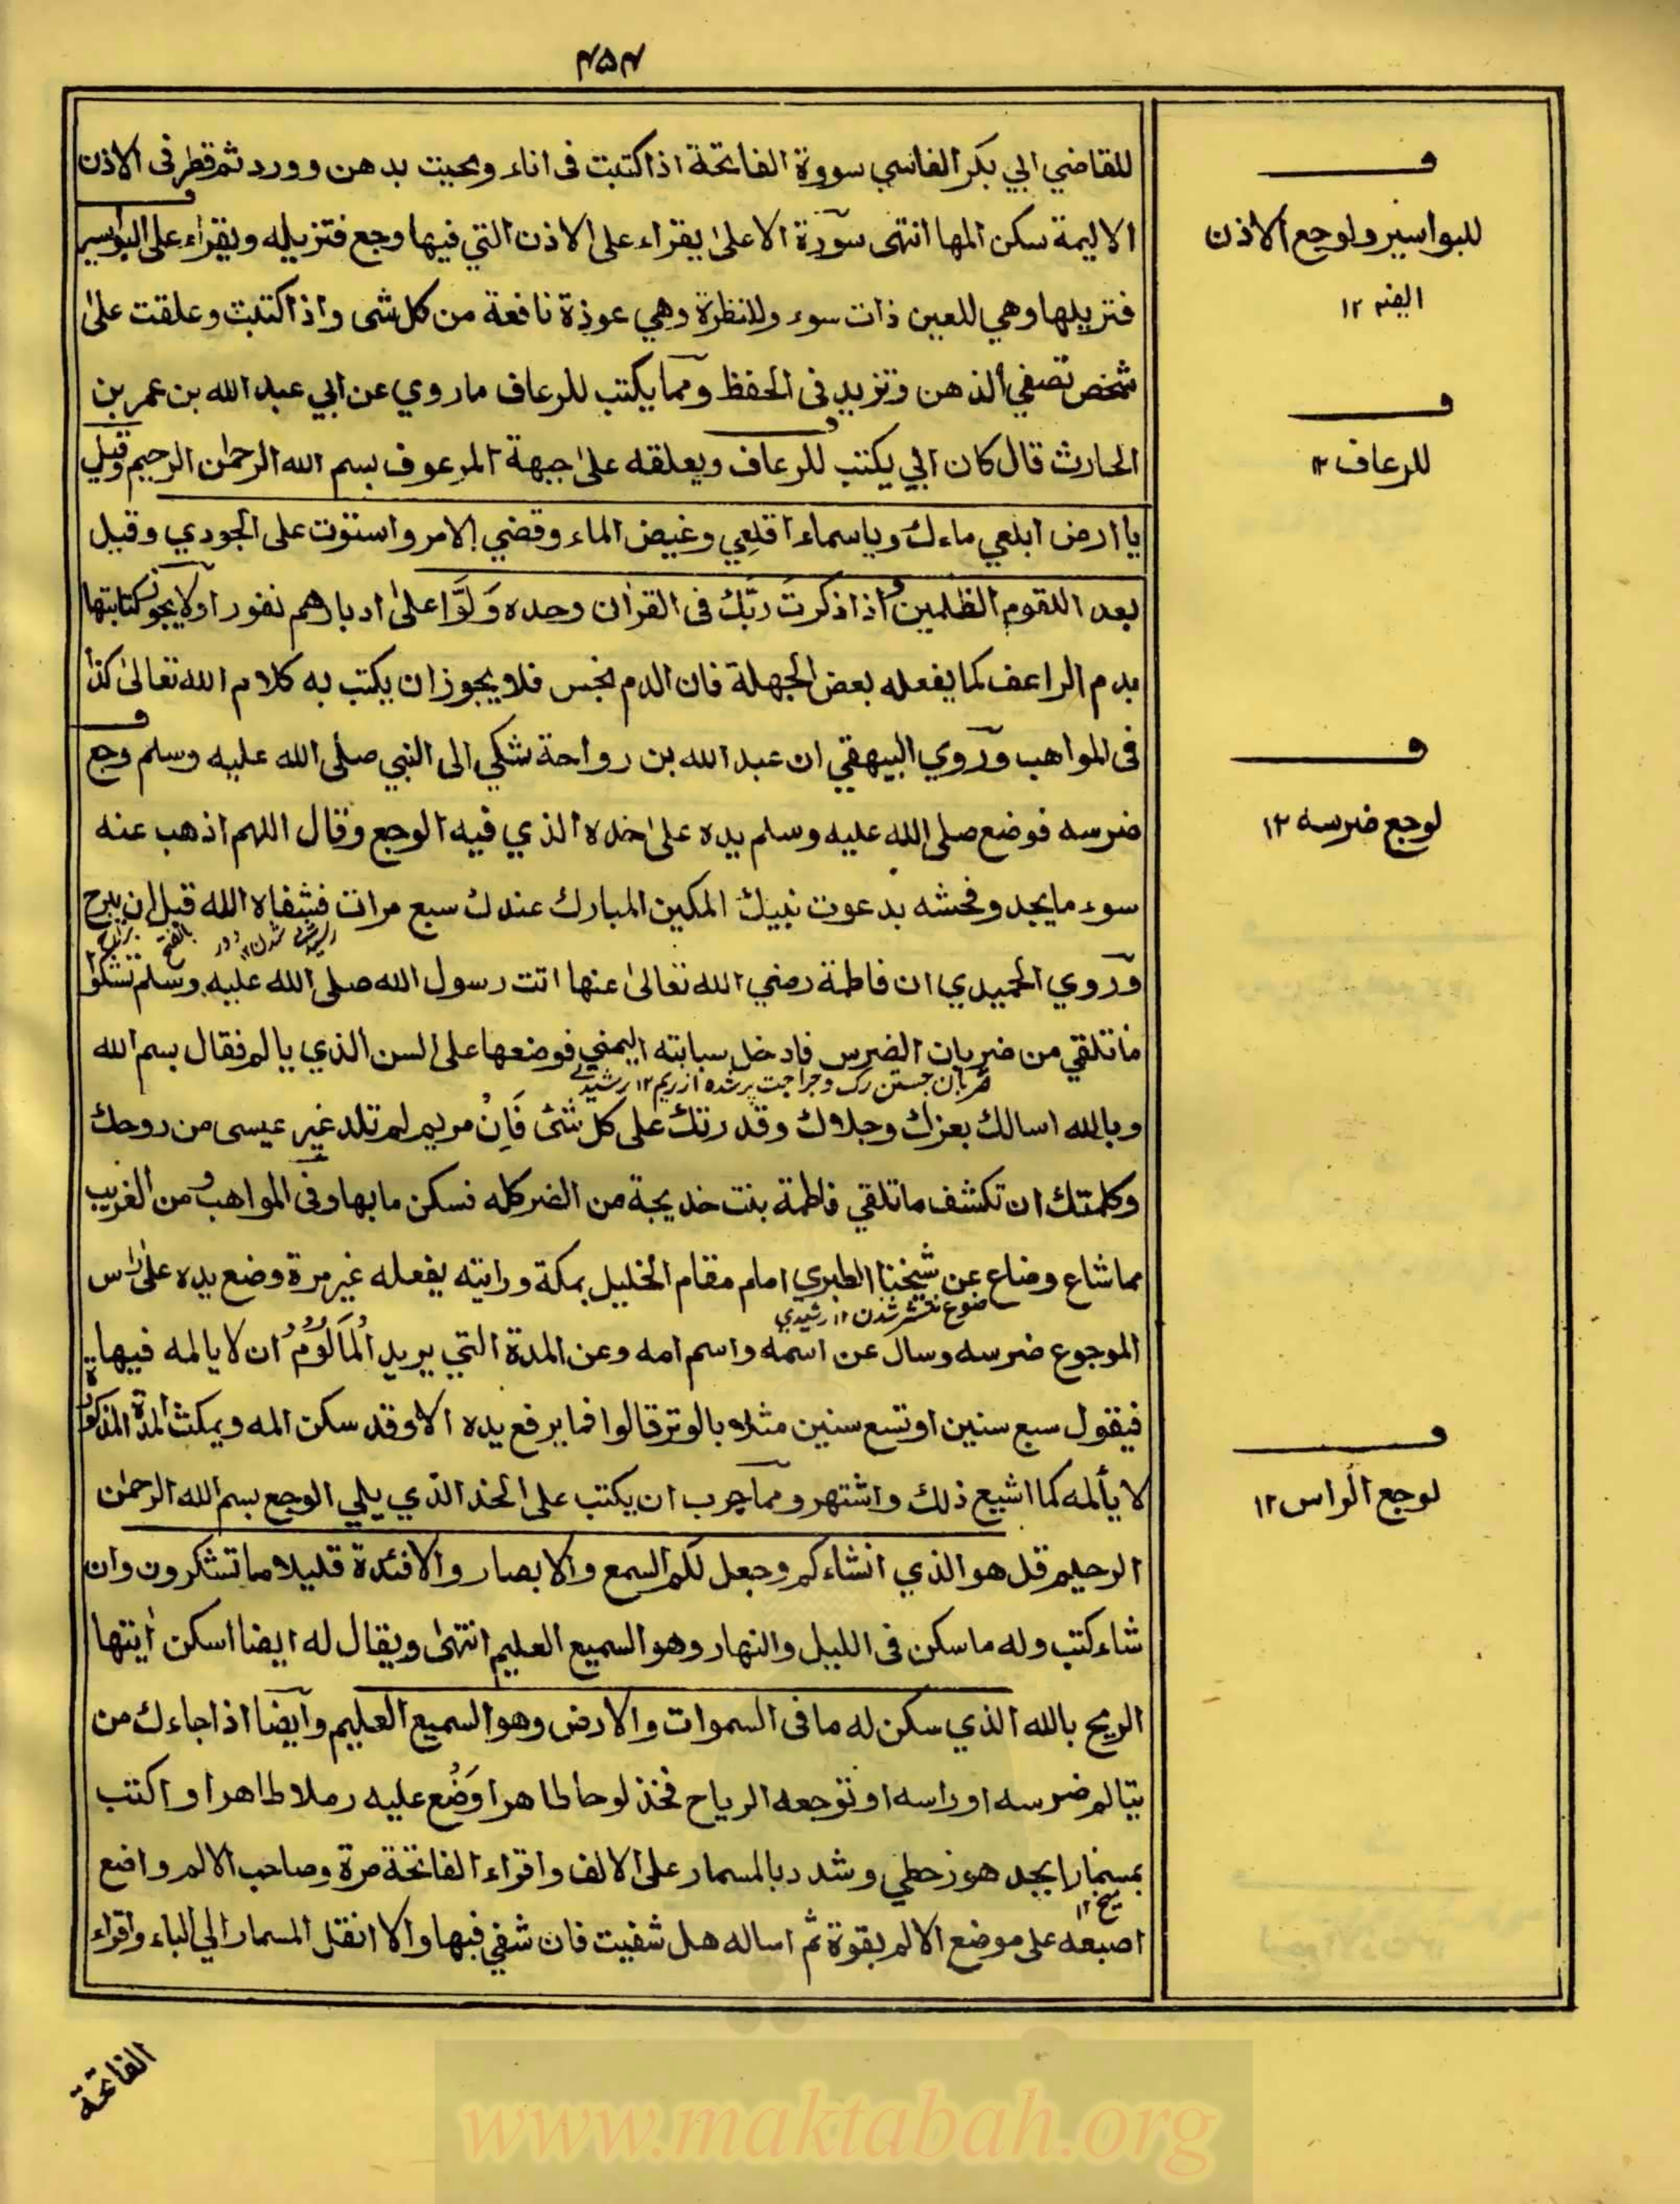 ۴۵۴
للقاضي ابي بكر الفاسي سورة الفاتحة اذا كتبت فى اناء ومحيت بدهن وورد ثم قطر فى الاذن
الاليمة سكن المها انتهى سورة الاعلىٰ يقراء على الاذن التي فيها وجع فتزيله ويقراء على البواسير
فتزيلها وهي للعين ذات سوء وللنظرة وهي عوذة نافعة من كل شى واذا كتبت وعلقت علىٰ
شخص تصفي الذهن وتزيد فى الحفظ ومما يكتب للرعاف ما روي عن ابي عبد الله بن عمر بن
الحارث قال كان ابي يكتب للرعاف ويعلقه علىٰ جبهة المرعوف بسم الله الرحمٰن الرحيم وقيل
يا ارض ابلعي ماءك وياسماء اقلعي وغيض الماء وقضي الامر واستوت على الجودي وقيل
بعد اللقوم الظلمين واذا ذكرت ربك فى القرآن وحده ولّوا علىٰ ادبارهم نفورا ولا يجوز كتابتها
بدم الراعف كما يفعله بعض الجهلة فان الدم نجس فلا يجوز ان يكتب به كلام الله تعالىٰ كذا
فى المواهب وروي البيهقي ان عبد الله بن رواحة شكي الى النبي صلى الله عليه وسلم وجع
ضرسه فوضع صلى الله عليه وسلم يده علىٰ خده الذي فيه الوجع وقال اللهم اذهب عنه
سوء ما يجد وفحشه بدعوت نبيك المكين المبارك عندك سبع مرات فشفاه الله قبل ان يبرح
وروي الحميدي ان فاطمة رضي الله تعالىٰ عنها اتت رسول الله صلى الله عليه وسلم تشكوا
ما تلقي من ضربان الضرس فادخل سبابته اليمني فوضعها على السن الذي يالم فقال بسم الله
ضربان جستن رگ و جراحت پر شده از ريم ۱۲ رشيدي
وبالله اسالك بعزك وجلالك وقدرتك على كل شئ فان مريم لم تلد غير عيسى من روحك
وكلمتك ان تكشف ما تلقي فاطمة بنت خديجة من الضر كله فسكن ما بها وفى المواهب ومن الغريب
مما شاع وضاع عن شيخنا الطبري امام مقام الخليل بمكة ورايته يفعله غير مرة وضع يده علىٰ راس
ضوع منتشر شدن ۱۲ رشيدي
الموجوع ضرسه وسال عن اسمه واسم امه وعن المدة التي يريد المألوم ان لا يالمه فيها
فيقول سبع سنين او تسع سنين مثلا بالوتر قالوا فما يرفع يده الا وقد سكن المه ويمكث المدة المذكورة
لا يألمه كما اشيع ذلك واشتهر ومما جرب ان يكتب على الخد الذي يلي الوجع بسم الله الرحمٰن
الرحيم قل هو الذي انشاءكم وجعل لكم السمع والابصار والافئدة قليلا ما تشكرون وان
شاء كتب وله ما سكن فى الليل والنهار وهو السميع العليم انتهىٰ ويقال له ايضا اسكن ايتها
الريح بالله الذي سكن له ما فى السموات والارض وهو السميع العليم وايضا اذا جاءك من
يتالم ضرسه او راسه او توجعه الرياح فخذ لوحا طاهرا وضع عليه رملا طاهرا واكتب
بمسمار ابجد هوز حطي وشدد بالمسمار على الالف واقراء الفاتحة مرة وصاحب الالم واضع
ميخ ۱۲
اصبعه على موضع الالم بقوة ثم اساله هل شفيت فان شفي فبها والا انقل المسمار الي الباء واقراء
الفاتحة
ف
للبواسير ولوجع الاذن
ايضا ۱۲
ف
للرعاف ۱۲
ف
لوجع ضرسه ۱۲
ف
لوجع الراس ۱۲
www.maktabah.org